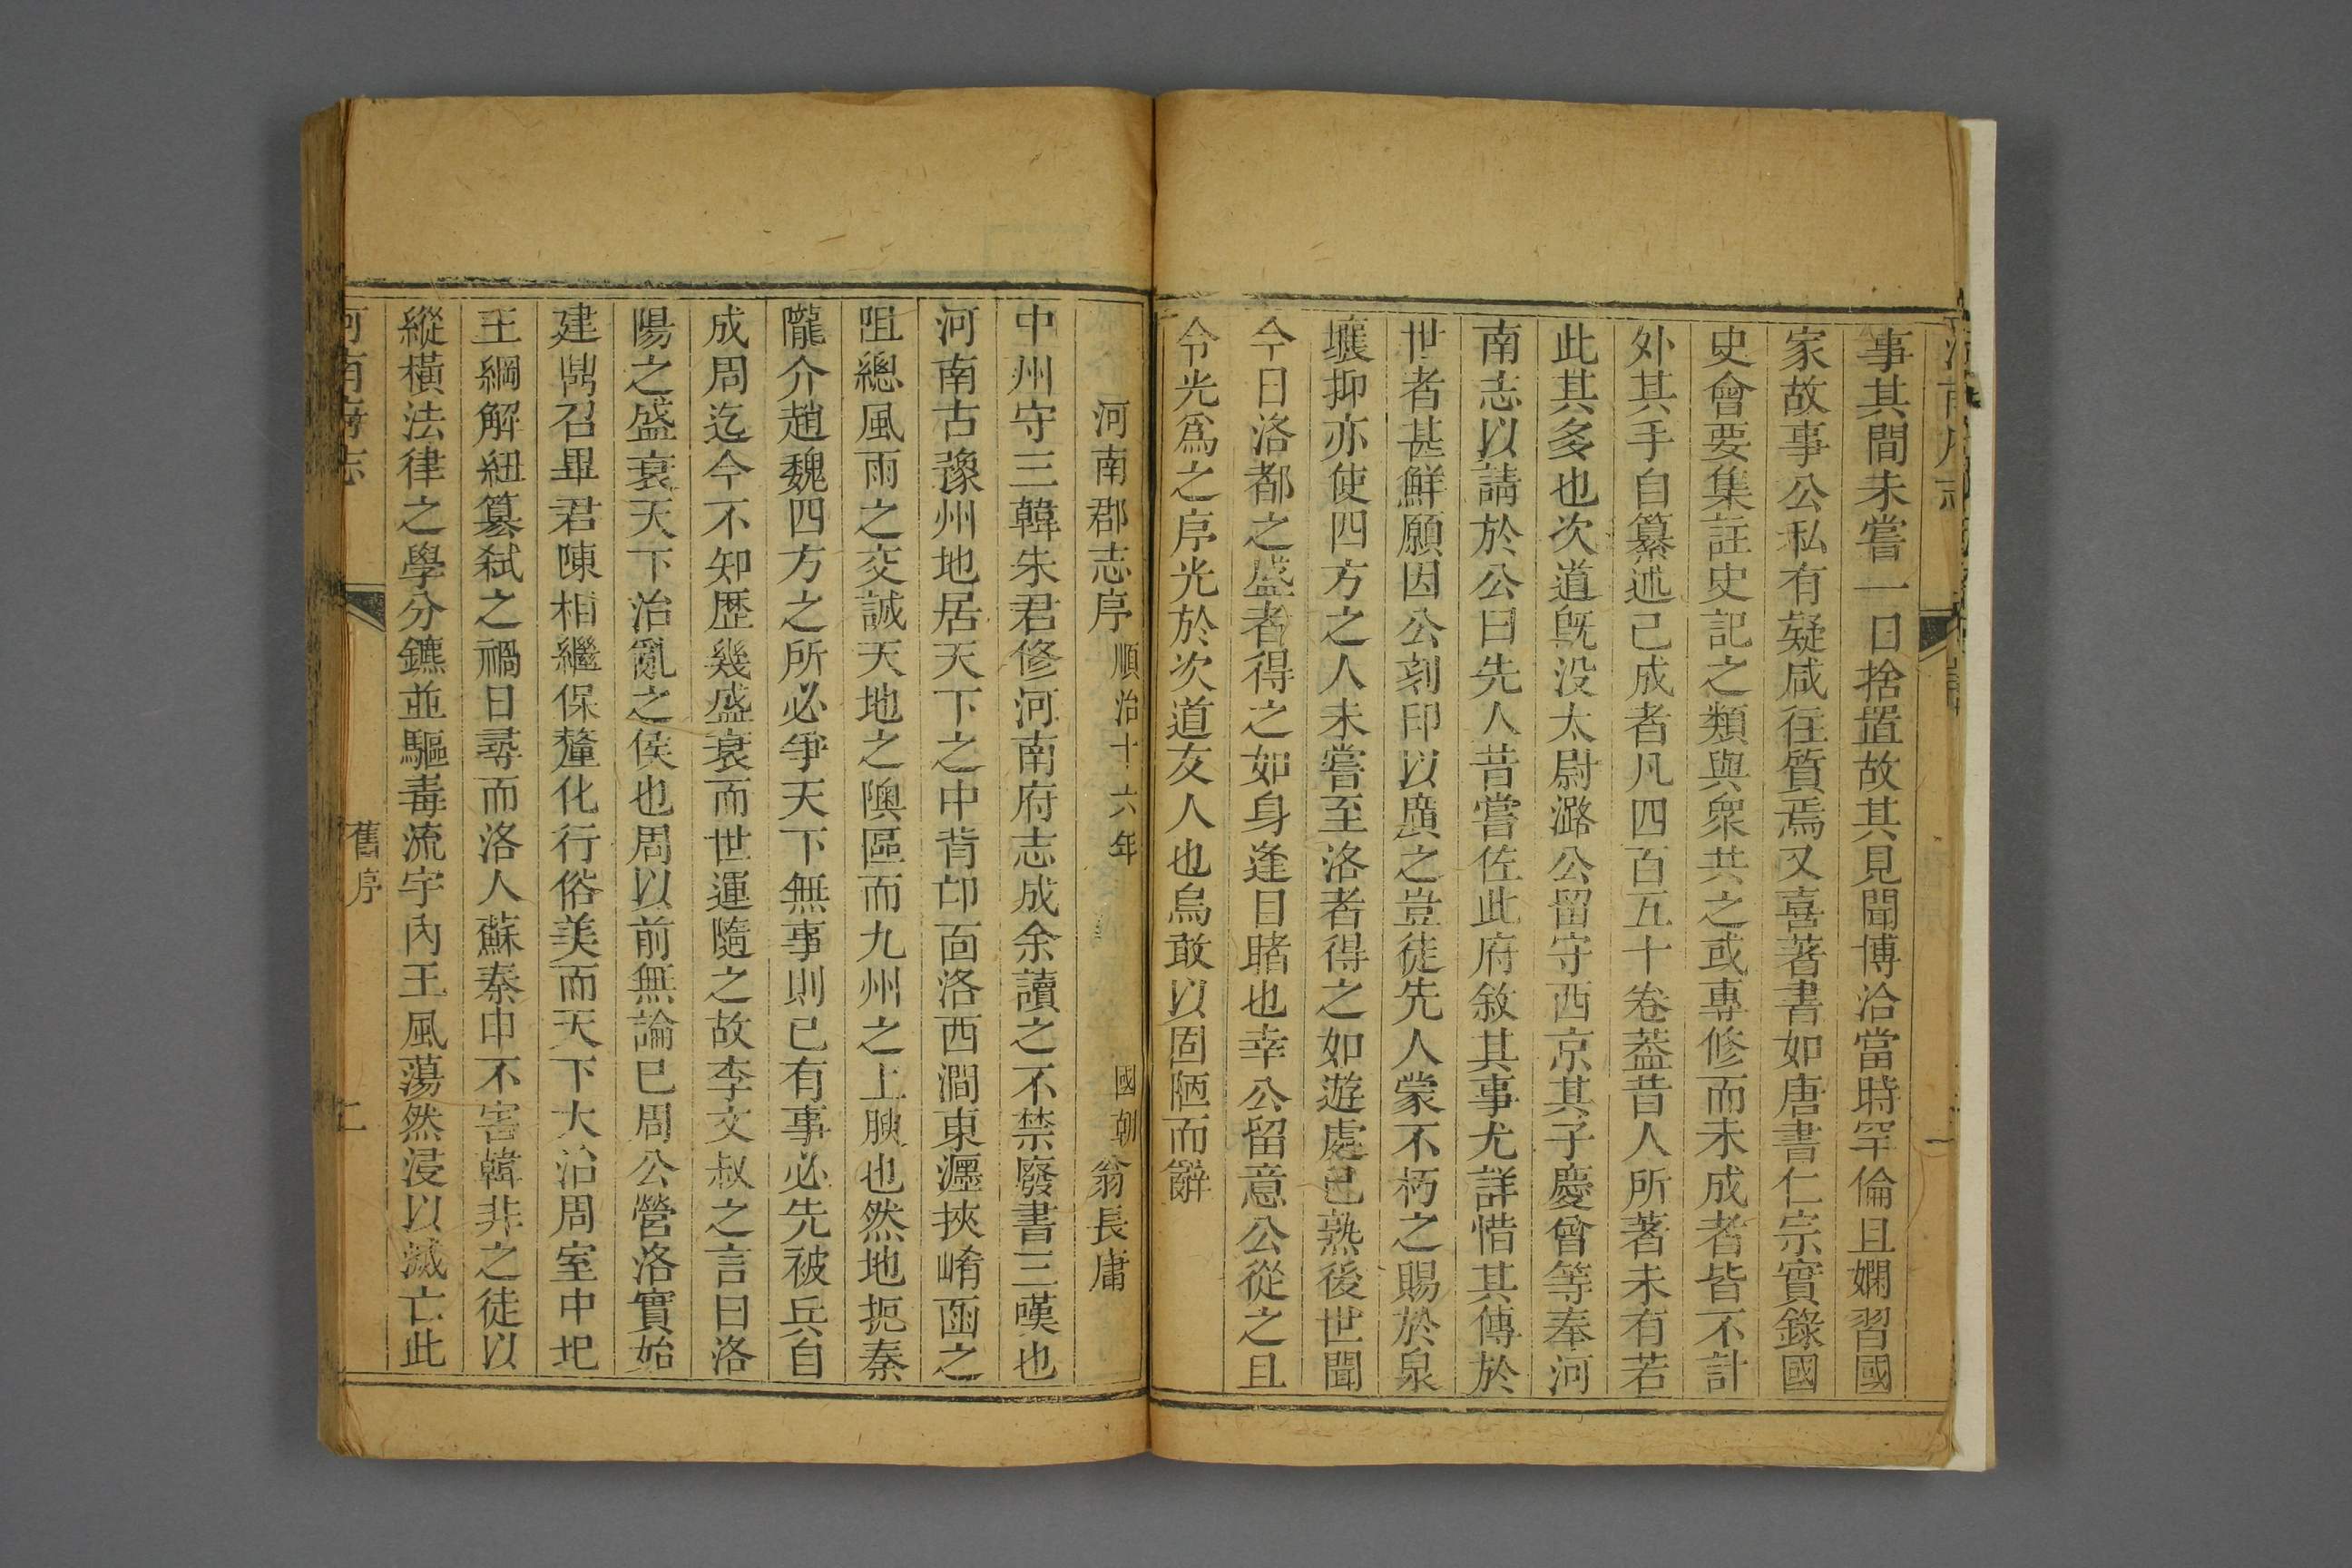 事其間未嘗一日捨置故其見聞博洽當時罕倫且嫻習國
家故事公私有疑咸往質焉又喜著書如唐書仁宗實錄國
史會要集註史記之類與衆共之或專修而未成者皆不計
外其手自纂述已成者凡四百五十卷葢昔人所著未有若
此其多也次道旣没太尉潞公留守西京其子慶曾等奉河
南志以請於公曰先人昔嘗佐此府敘其事尤詳惜其傳於
世者甚鮮願因公刻印以廣之豈徒先人蒙不朽之賜於泉
壤抑亦使四方之人未嘗至洛者得之如遊處已熟後世聞
今日洛都之盛者得之如身逢目睹也幸公留意公從之且
令光爲之序光於次道友人也烏敢以固陋而辭
河南郡志序 順治十六年 國朝翁長庸
中州守三韓朱君修河南府志成余讀之不禁廢書三嘆也
河南古豫州地居天下之中背邙面洛西澗東瀍挾崤函之
阻總風雨之交誠天地之隩區而九州之上腴也然地扼秦
隴介趙魏四方之所必爭天下無事則已有事必先被兵自
成周迄今不知歷幾盛衰而世運隨之故李文叔之言曰洛
陽之盛衰天下治亂之侯也周以前無論已周公營洛實始
建鼎召畢君陳相繼保釐化行俗美而天下大治周室中圯
王綱解紐簒弑之禍日尋而洛人蘇秦申不害韓非之徒以
縱橫法律之學分鑣並驅毒流宇內王風蕩然浸以滅亡此
河南府志 舊序 二